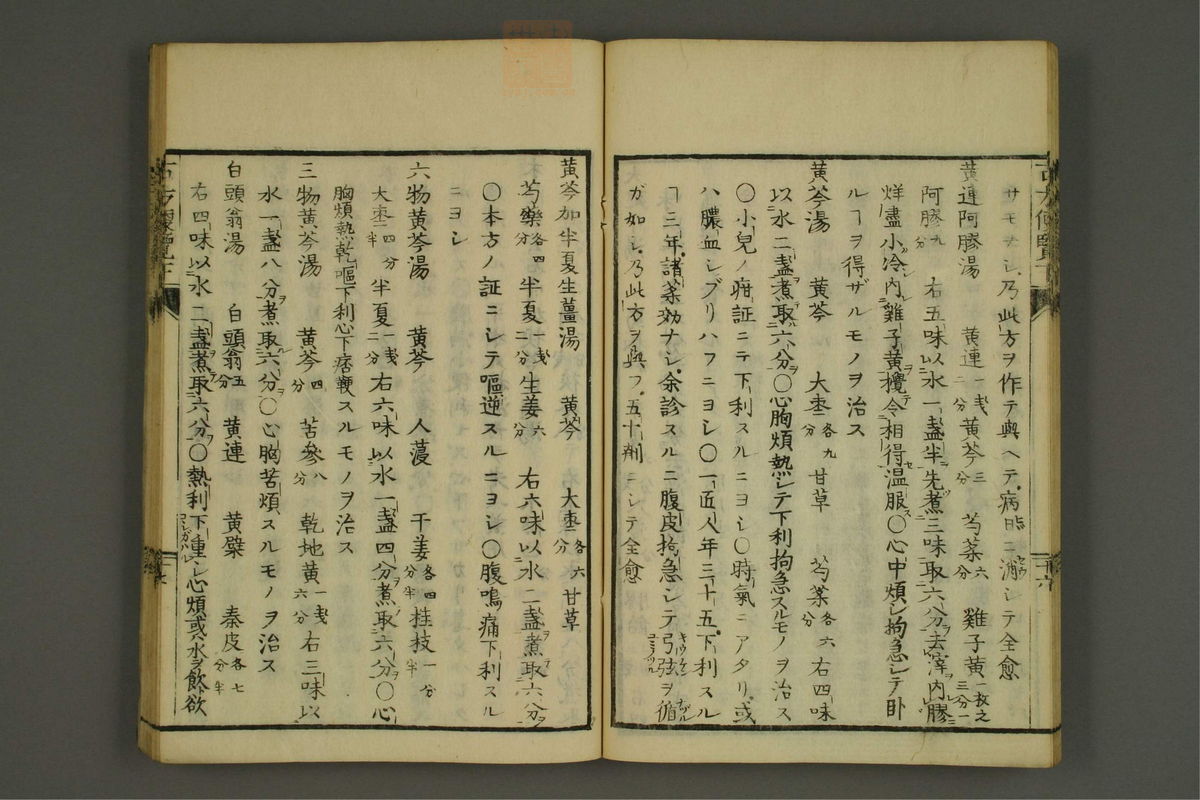 サモナシ乃此方ヲ作テ與ヘテ病日ニ消シテ全愈
黄連阿膠湯 黄連一戔二分 黄芩三分 芍薬六分 雞子黄一枚之三分一
阿膠九分 右五味以水一盞半先煮三味取六分去滓内膠
烊盡小冷内雞子黄攪令相得温服〇心中煩シ拘急シテ卧
ルヿヲ得ザルモノヲ治ス
黄芩湯 黄芩 大棗各九分 甘草 芍薬各六分 右四味
以水二盞煮取六分〇心胸煩熱シテ下利拘急スルモノヲ治ス
〇小兒ノ疳証ニテ下利スルニヨシ〇時氣ニアタリ或
ハ膿血シブリハフニヨシ〇一匠人年三十五下利スル
ヿ三年諸薬効ナシ余診スルニ腹皮拘急シテ弓弦ヲ循
ガ如シ乃此方ヲ與フ五十劑ニシテ全愈
黄芩加半夏生薑湯 黄芩 大棗各六分 甘草
芍藥各四分 半夏一戔二分 生姜六分 右六味以水二盞煮取六分
〇本方ノ証ニシテ嘔逆スルニヨシ〇腹鳴痛下利スル
ニヨシ
六物黄芩湯 黄芩 人蓡 干姜各四分半 桂枝一分半
大棗四分半 半夏一戔二分 右六味以水一盞四分煮取六分〇心
胸煩熱乾嘔下利心下痞鞕スルモノヲ治ス
三物黄芩湯 黄芩四分 苦参八分 乾地黄一戔六分 右三味以
水一盞八分煮取六分〇心胸苦煩スルモノヲ治ス
白頭翁湯 白頭翁五分 黄連 黄檗 秦皮各七分半
右四味以水二盞煮取六分〇熱利下重シ心煩或ハ水ヲ飲欲